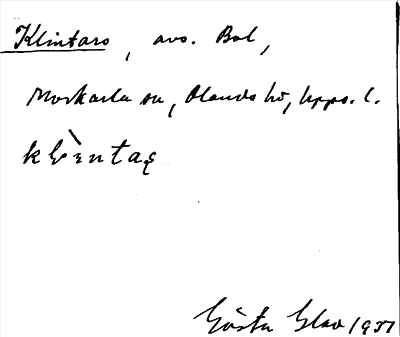 Klintaro, avs. Bol,
Morkarla sn, Olands hd, Upps. l.
Gösta Glav 1937